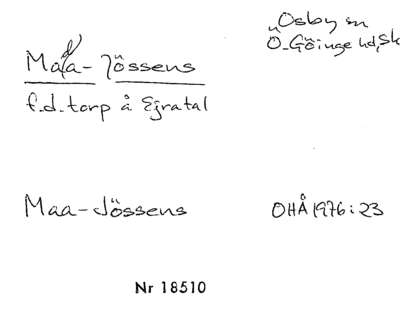 Osby sn
Ö. Göinge hd, Sk
Mada-Jössens
f.d. torp å Ejratal
Maa-Jössens
OHÅ 1976:23
Nr 18510